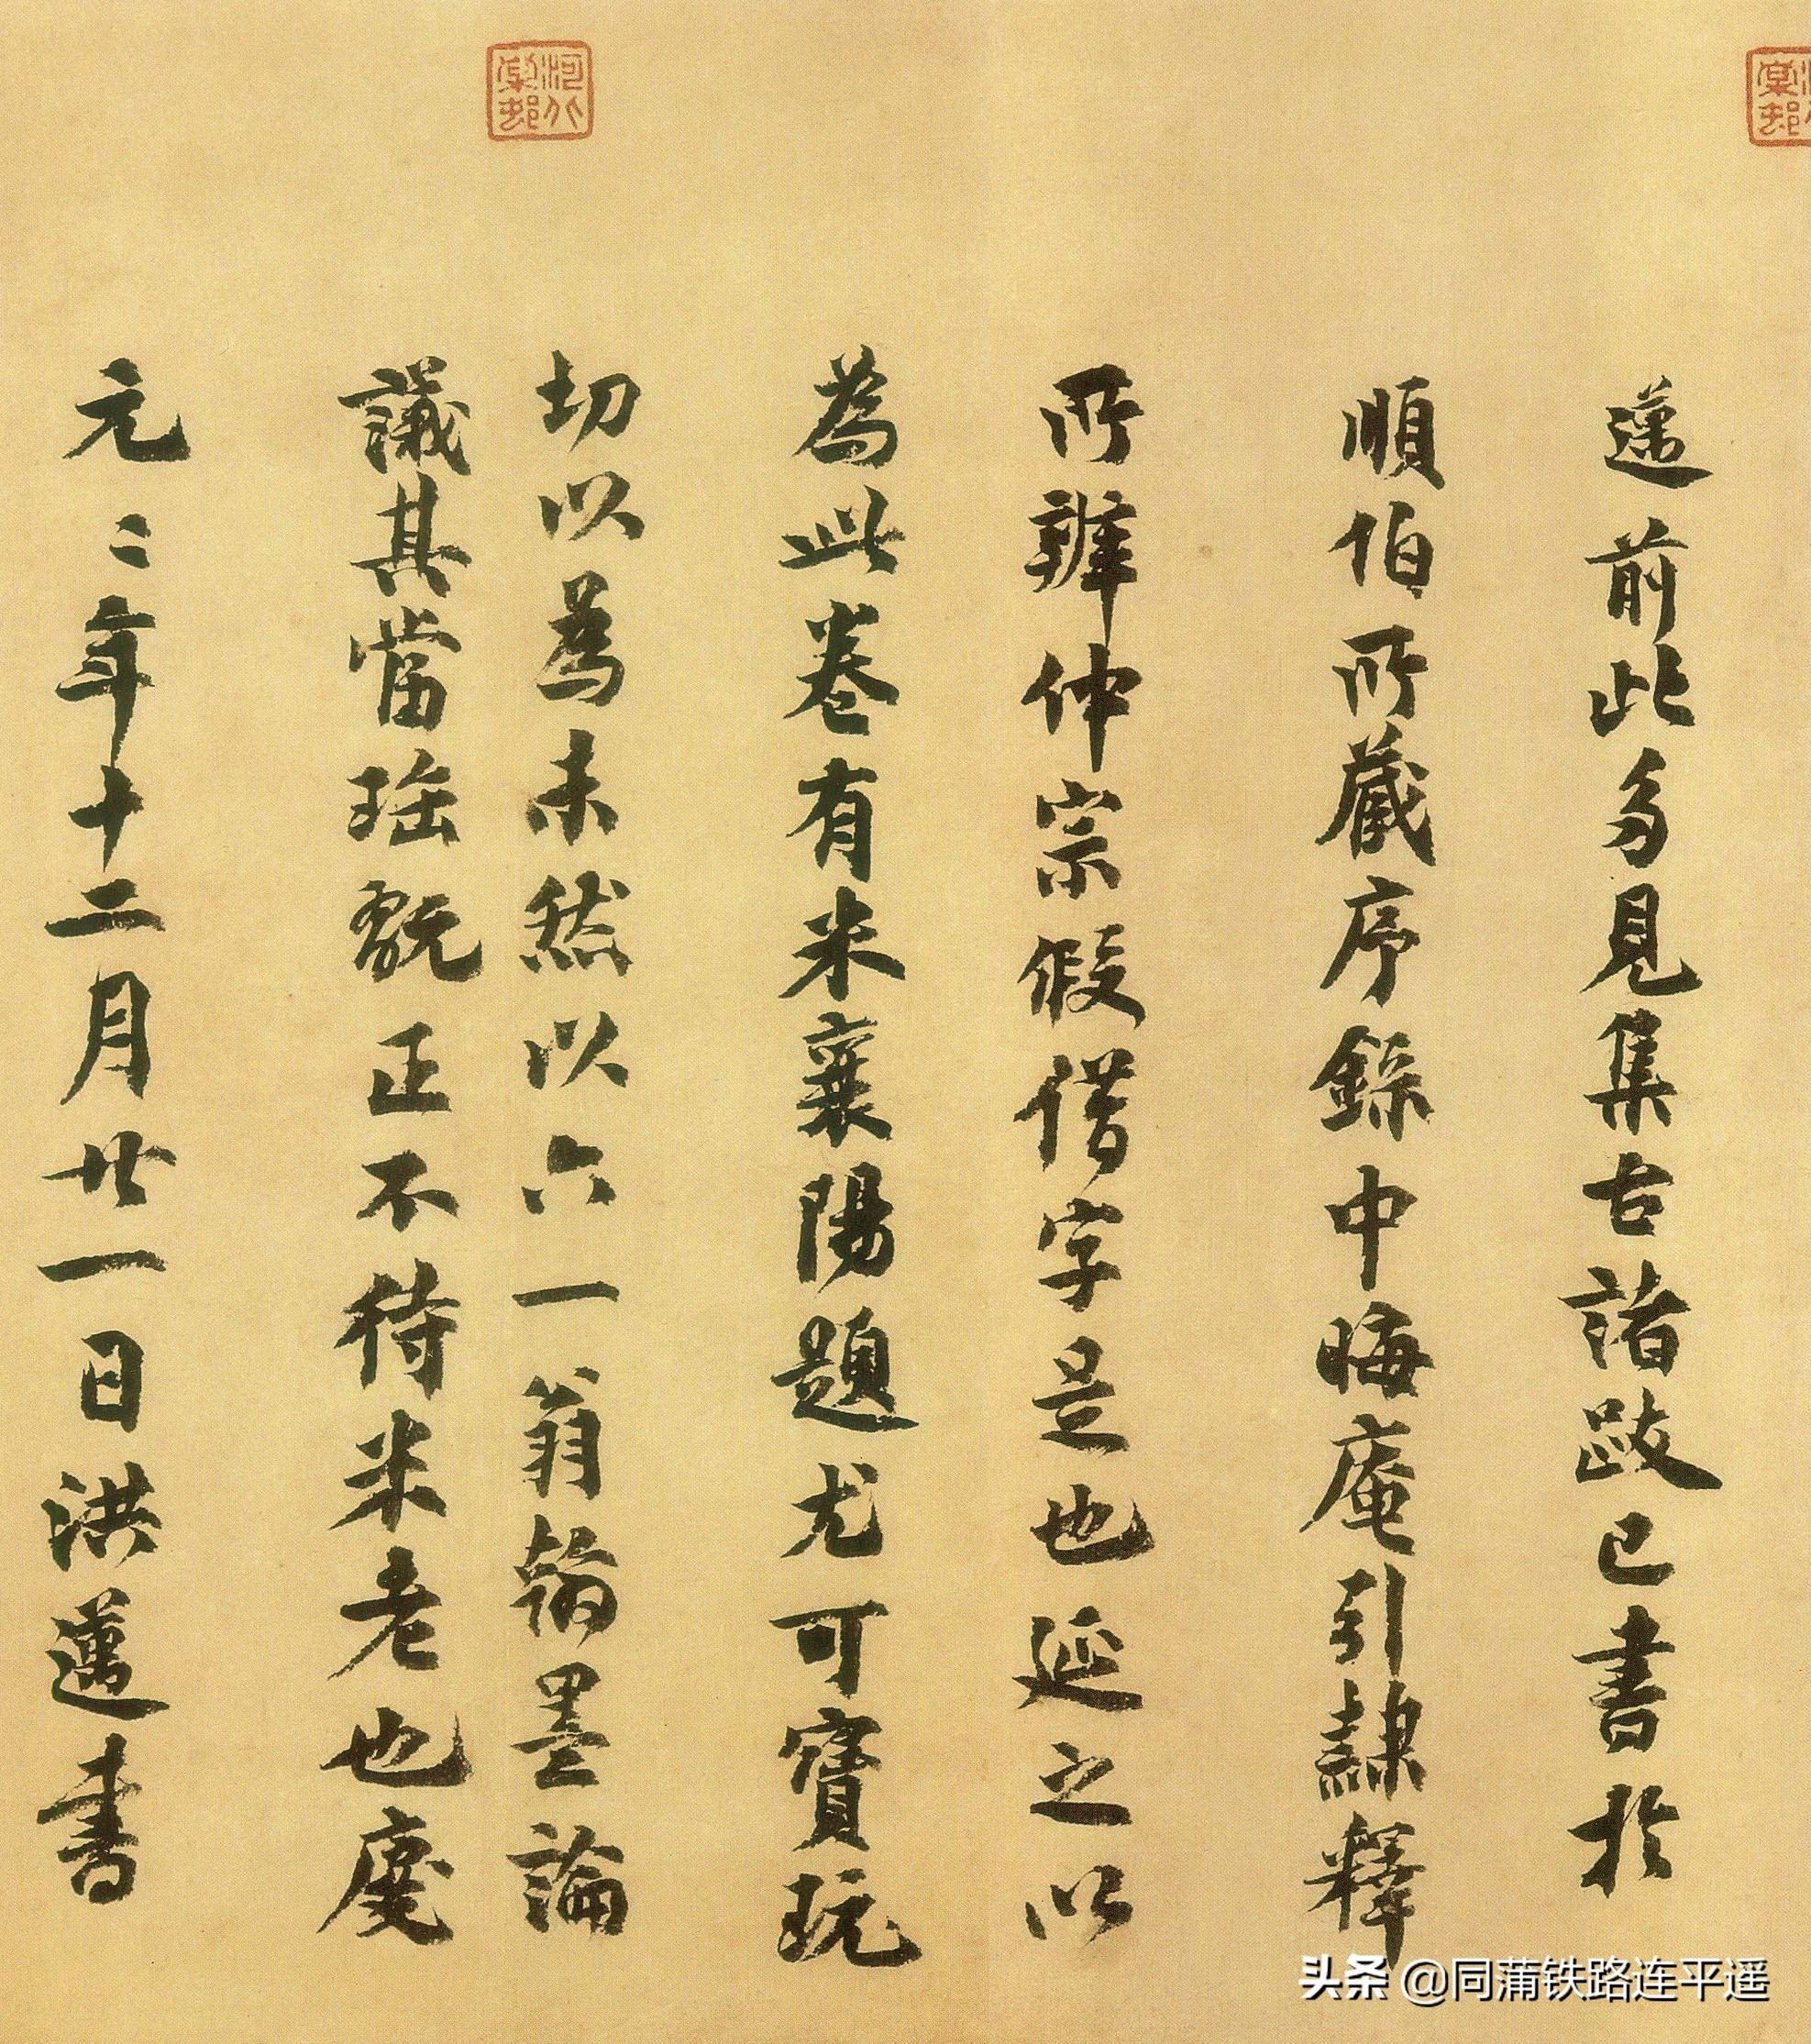 邁前此多見集古諸跋已書於
順伯所藏序錄中晦庵引隸釋
所辨仲宗假借字是也延之以
為此卷有米襄陽題尤可寶玩
切以為未然以六一翁翰墨論
議其當瑤翫正不待米老也慶
元二年十二月廿一日洪邁書
头条 @同蒲铁路连平遥